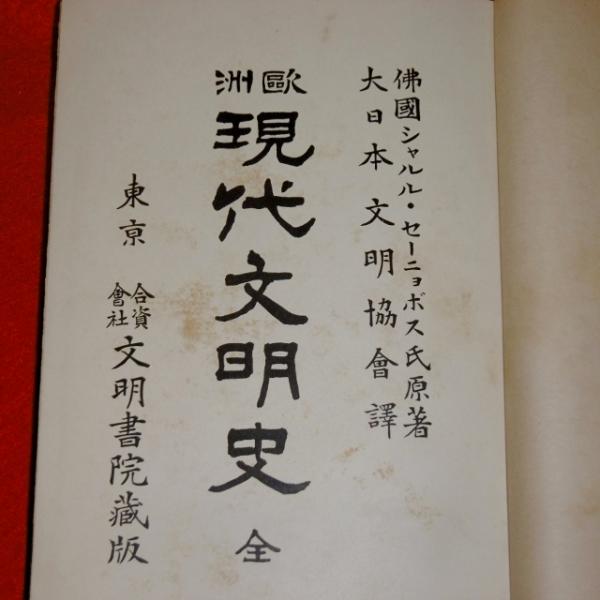 佛國シャルル・セーニョボス氏原著
大日本文明協會譯
歐洲
現代文明史 全
東亰
合資會社 文明書院藏版